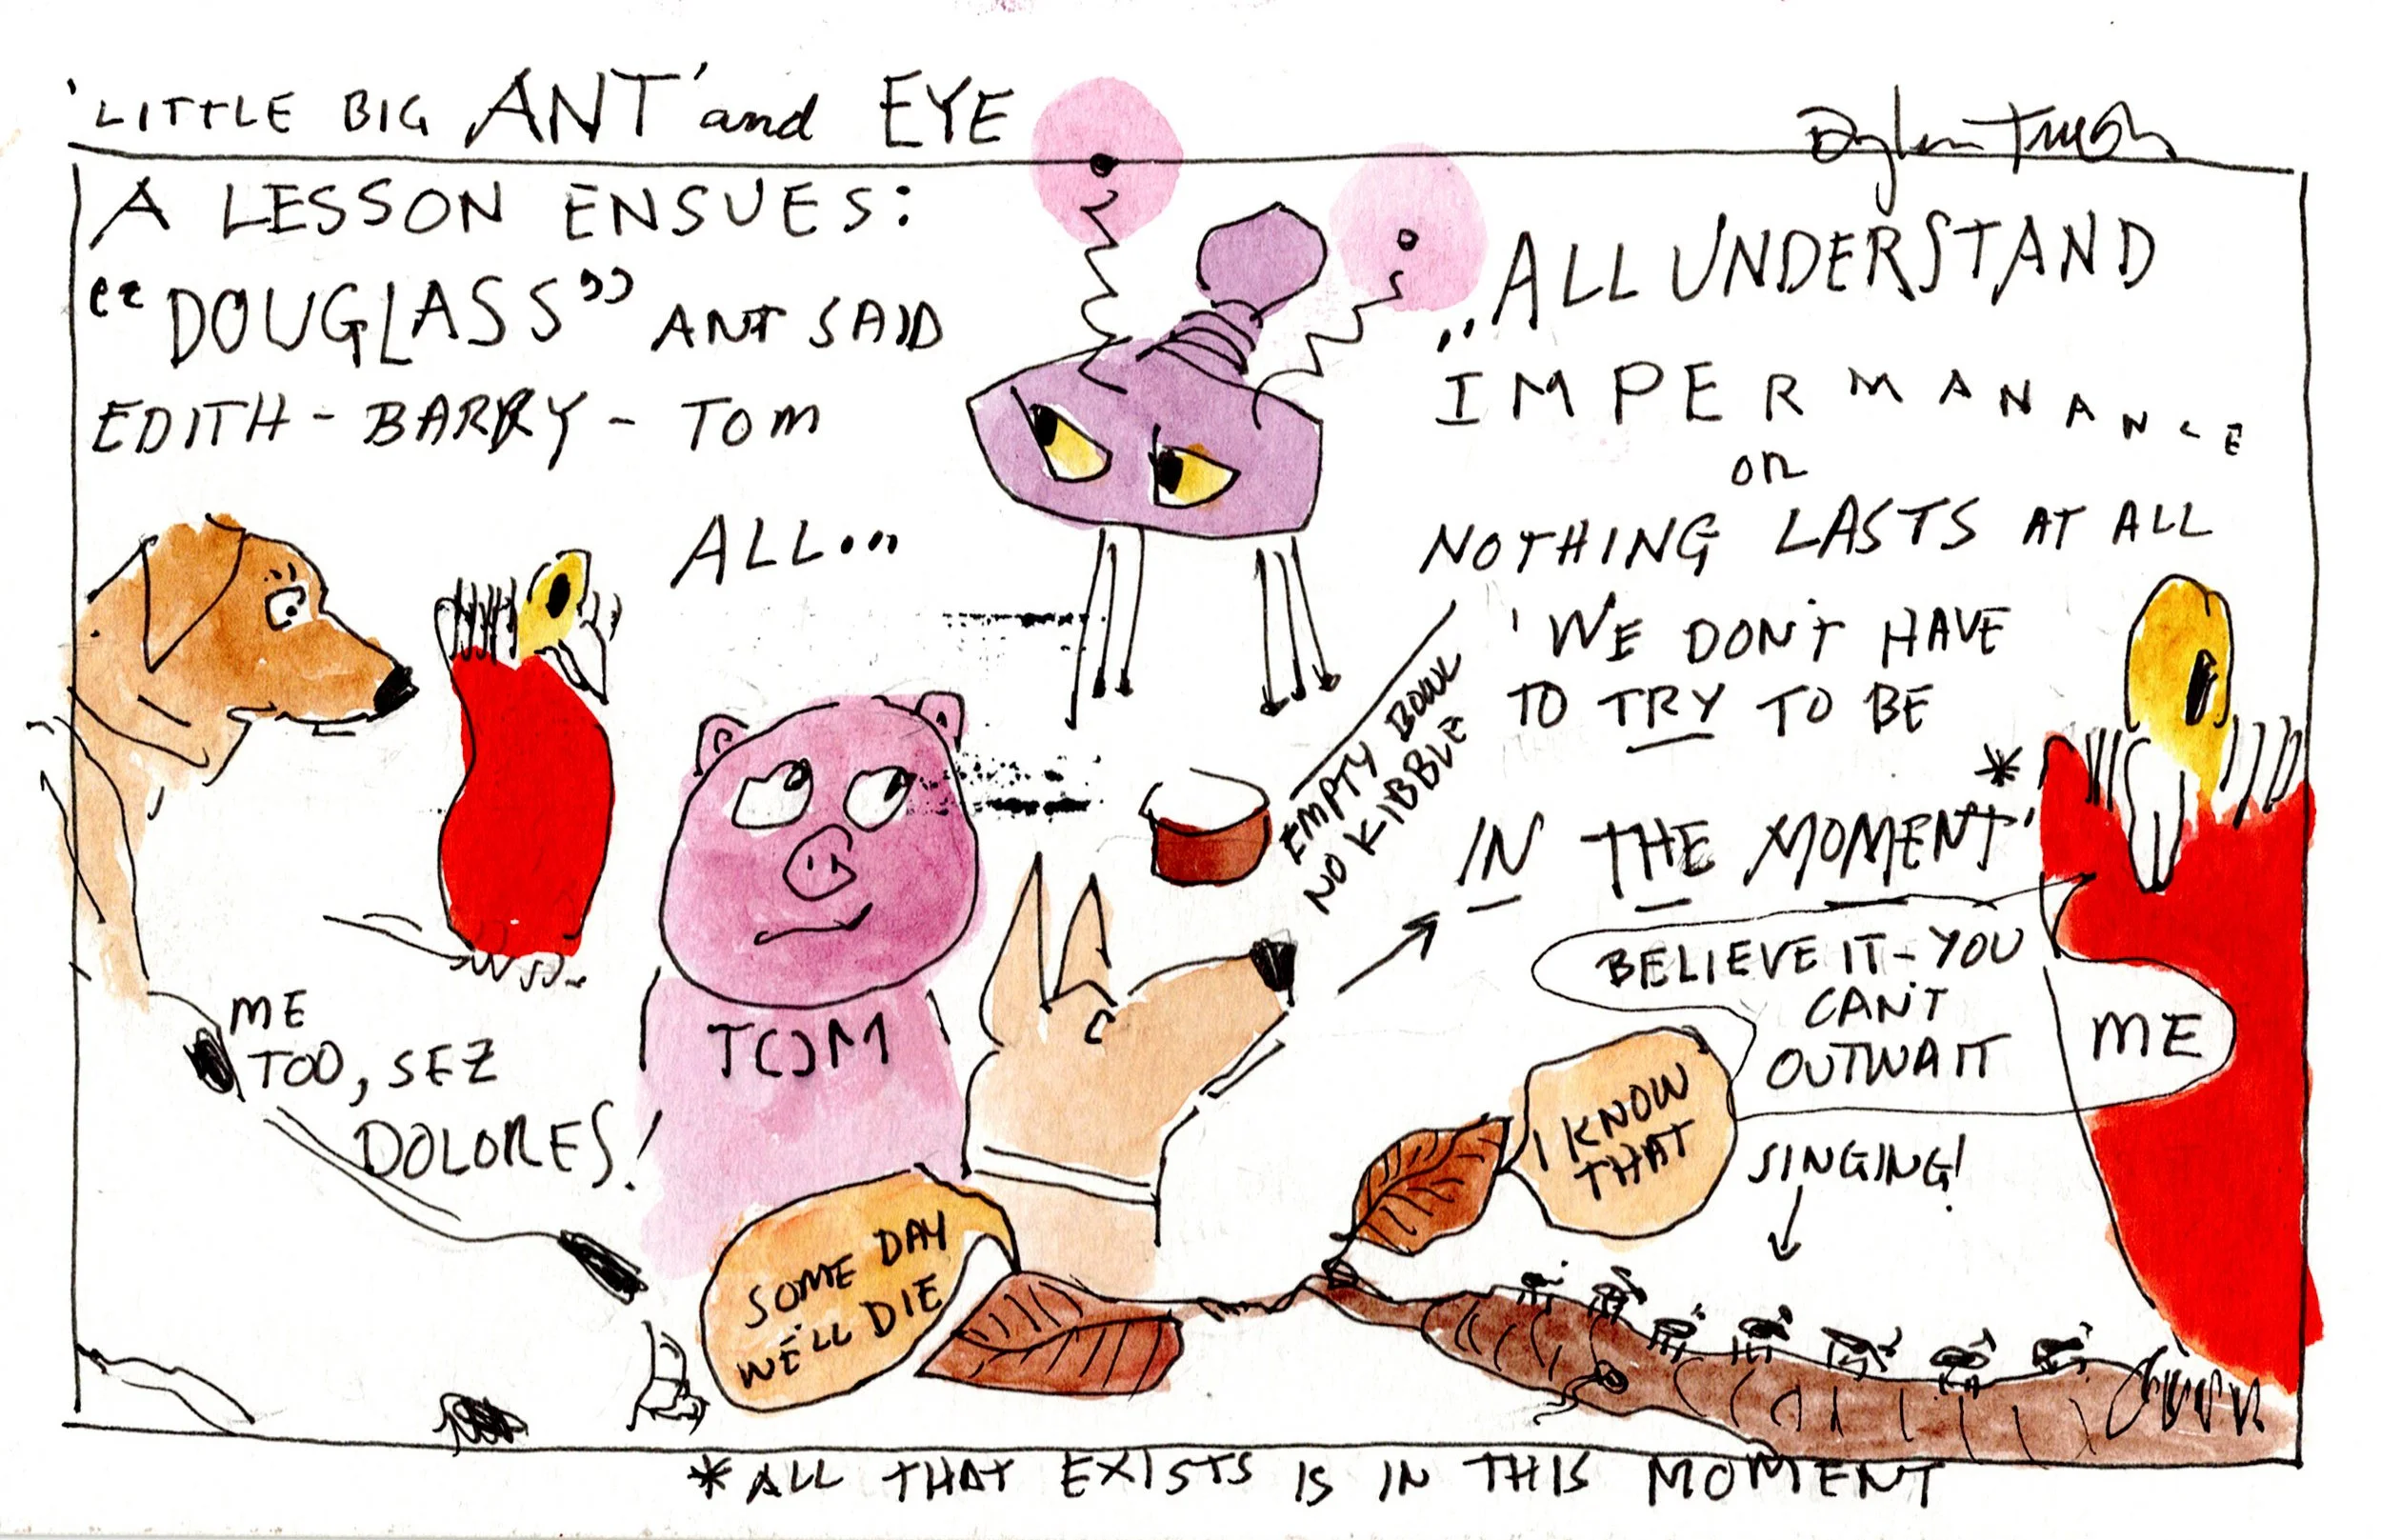 'LITTLE BIG ANT' and EYE
A LESSON ENSUES:
"DOUGLASS" ANT SAID
EDITH - BARRY - TOM
ALL...
,,ALL UNDERSTAND
IMPERMANANCE
OR
NOTHING LASTS AT ALL
'WE DON'T HAVE
TO TRY TO BE
IN THE MOMENT'*
EMPTY BOWL
NO KIBBLE
BELIEVE IT - YOU
CAN'T
OUTWAIT
ME
ME
TOO, SEZ
DOLORES!
TOM
I KNOW
THAT
SINGING!
SOME DAY
WE'LL DIE
*ALL THAT EXISTS IS IN THIS MOMENT